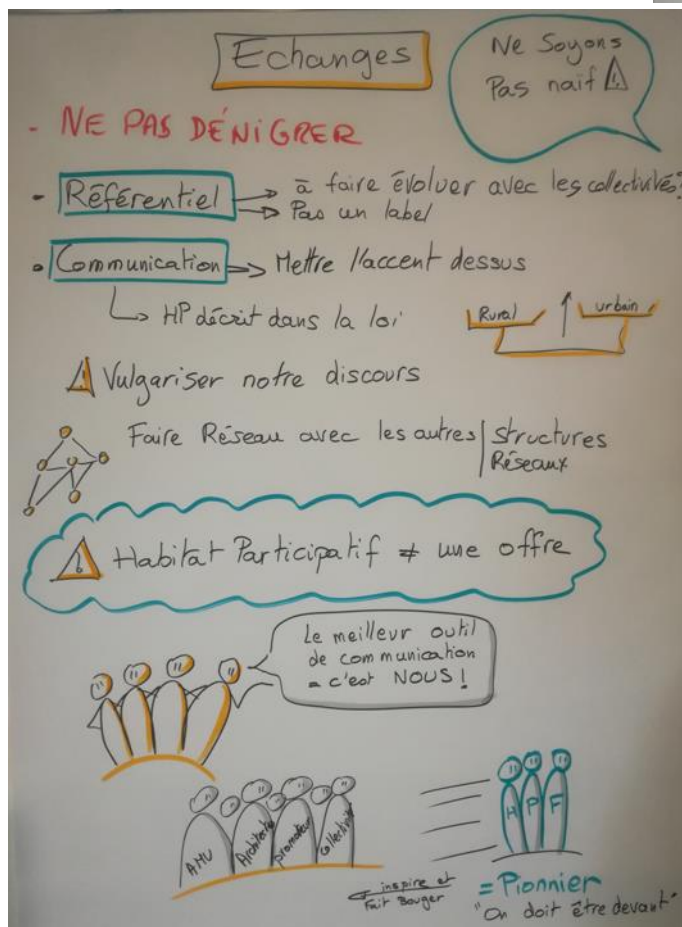 Echanges
Ne Soyons
Pas naïf ⚠
- NE PAS DÉNIGRER
- Référentiel → à faire évoluer avec les collectivités?
→ Pas un label
• Communication → Mettre l'accent dessus
↳ HP décrit dans la loi
Rural
urbain
⚠ Vulgariser notre discours
Faire Réseau avec les autres | structures
Réseaux
⚠ Habitat Participatif ≠ une offre
Le meilleur outil
de communication
= c'est NOUS !
AMU
Architectes
promoteur
collectivité
H P F
inspire et
Fait Bouger
= Pionnier
"On doit être devant"